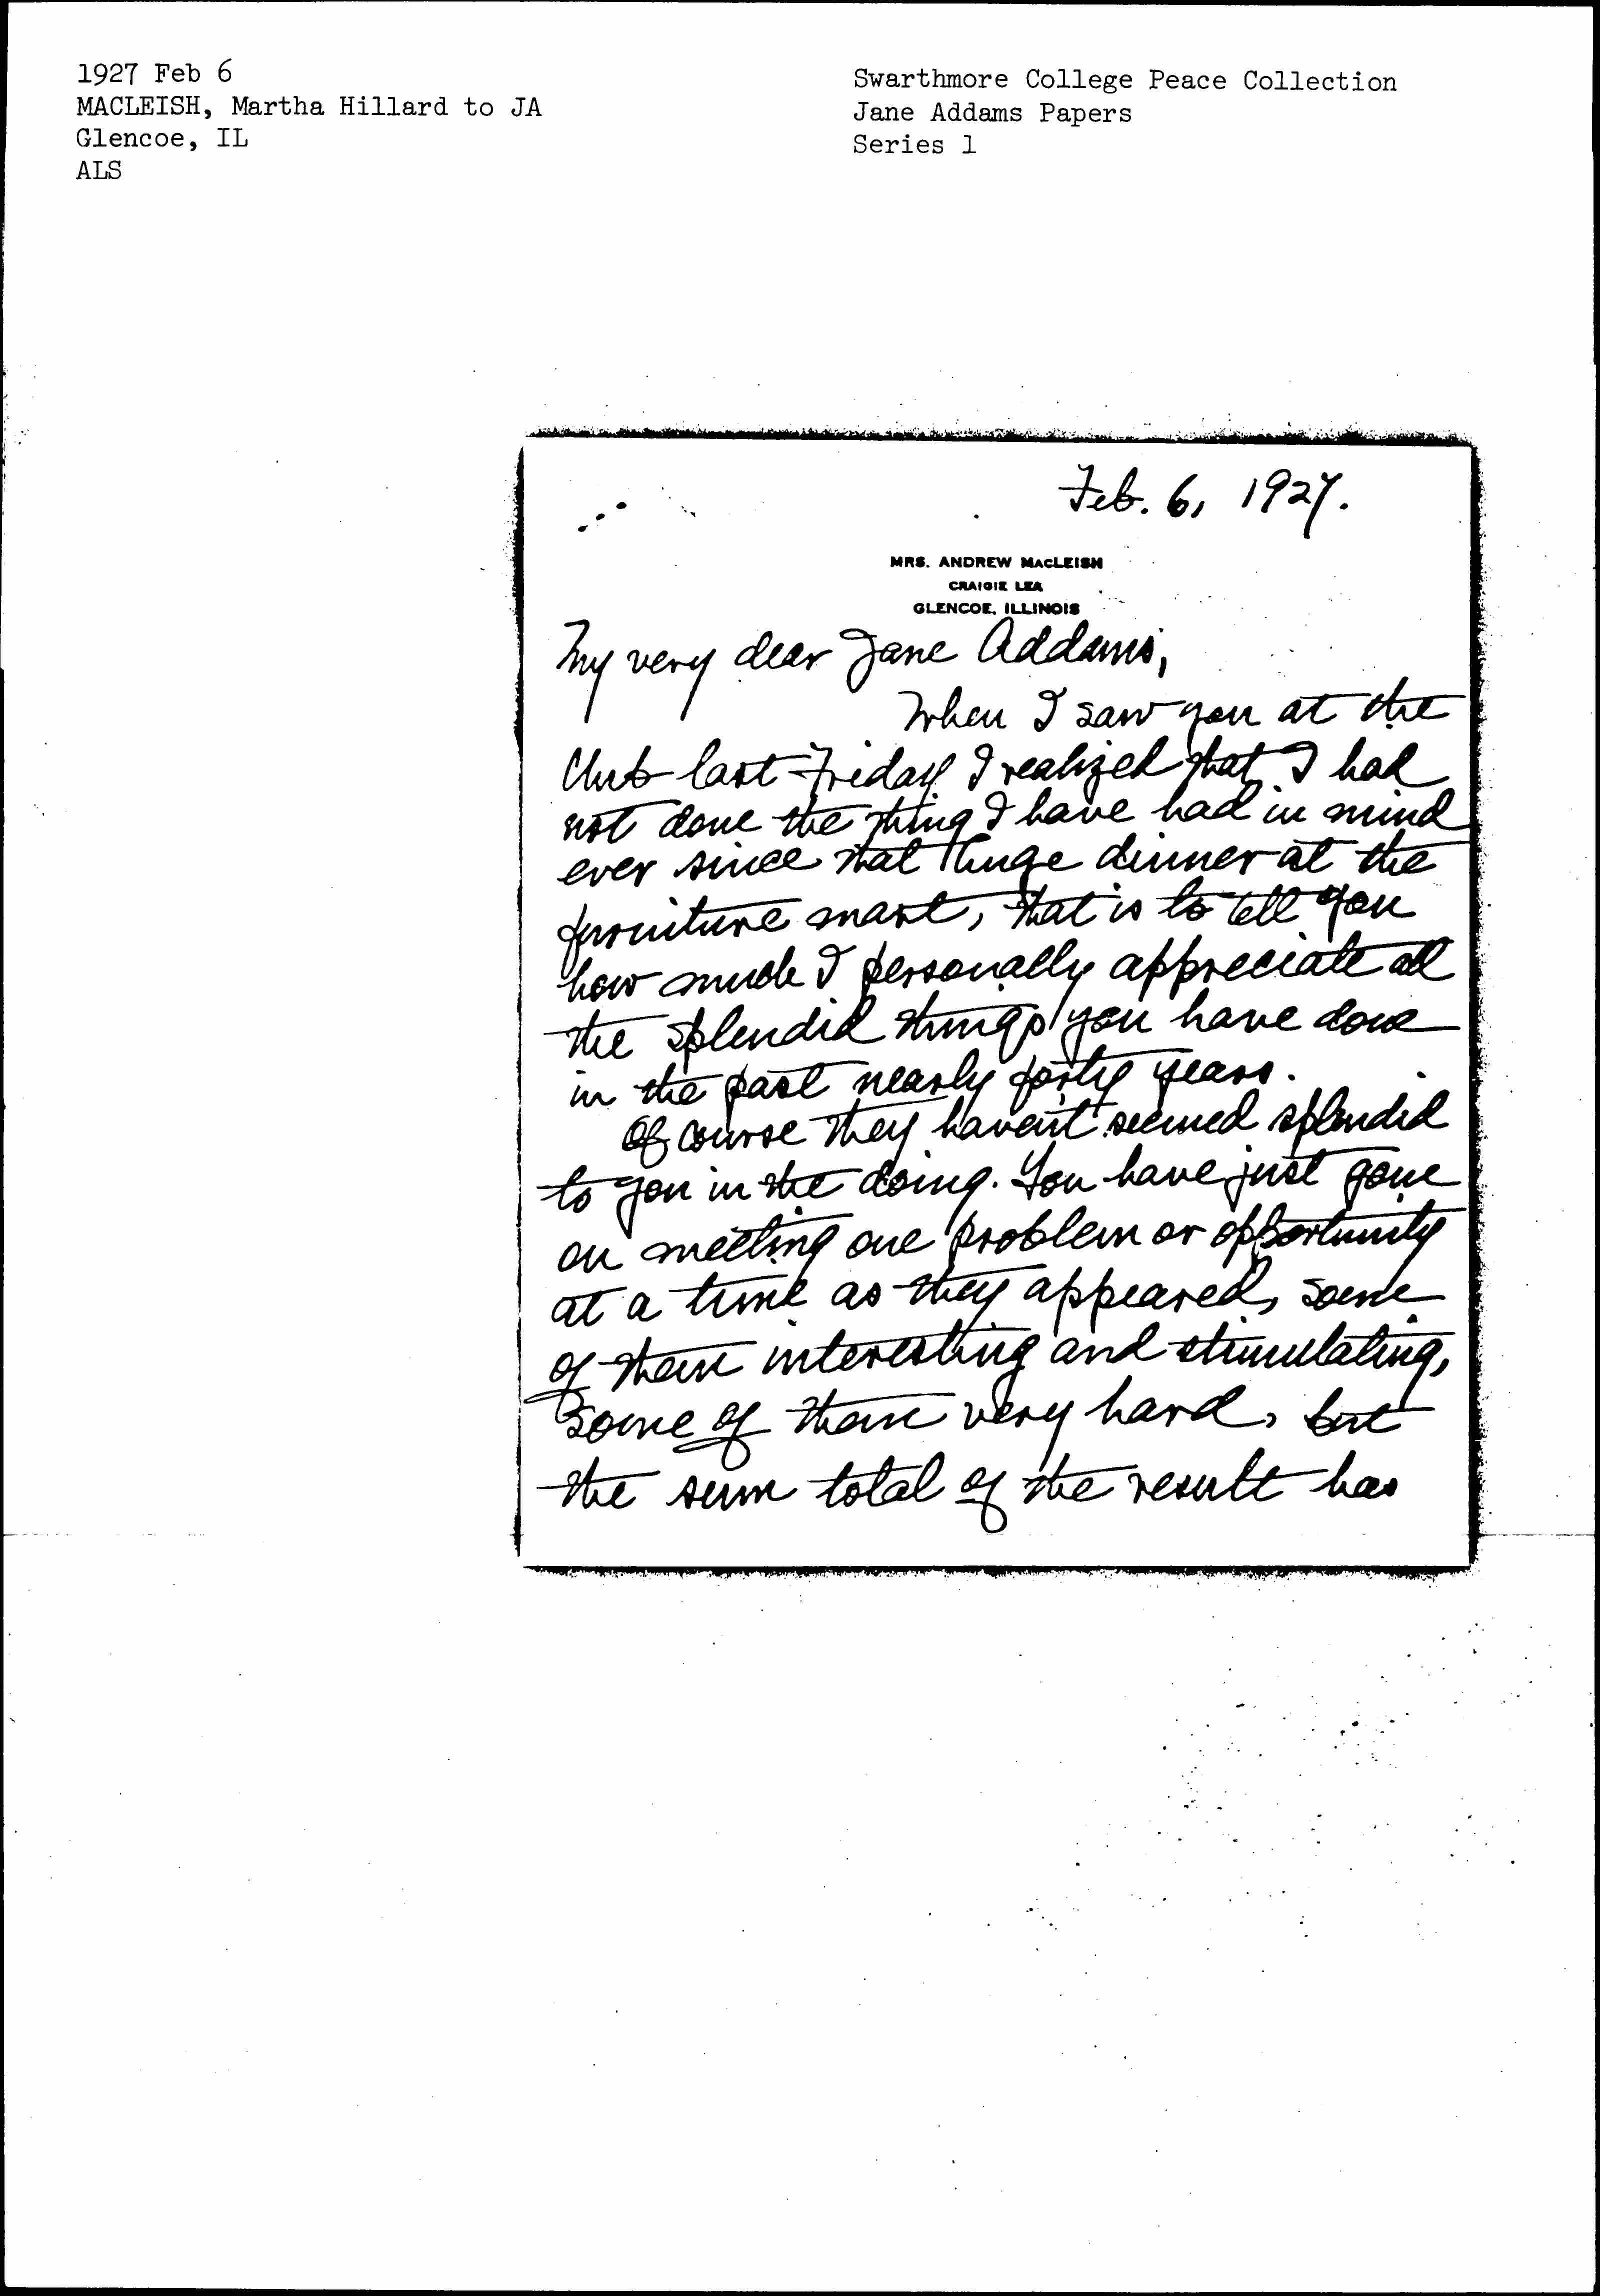 1927 Feb 6
MACLEISH, Martha Hillard to JA
Glencoe, IL
ALS
Swarthmore College Peace Collection
Jane Addams Papers
Series 1
Feb. 6, 1927.
MRS. ANDREW MACLEISH
CRAIGIE LEA
GLENCOE, ILLINOIS
My very dear Jane Addams,
When I saw you at the
Club last Friday I realized that I had
not done the thing I have had in mind
ever since that huge dinner at the
furniture mart, that is to tell you
how much I personally appreciate all
the splendid things you have done
in the past nearly forty years.
Of course they haven't seemed splendid
to you in the doing. You have just gone
on meeting one problem or opportunity
at a time as they appeared, some
of them interesting and stimulating,
some of them very hard, but
the sum total of the result has